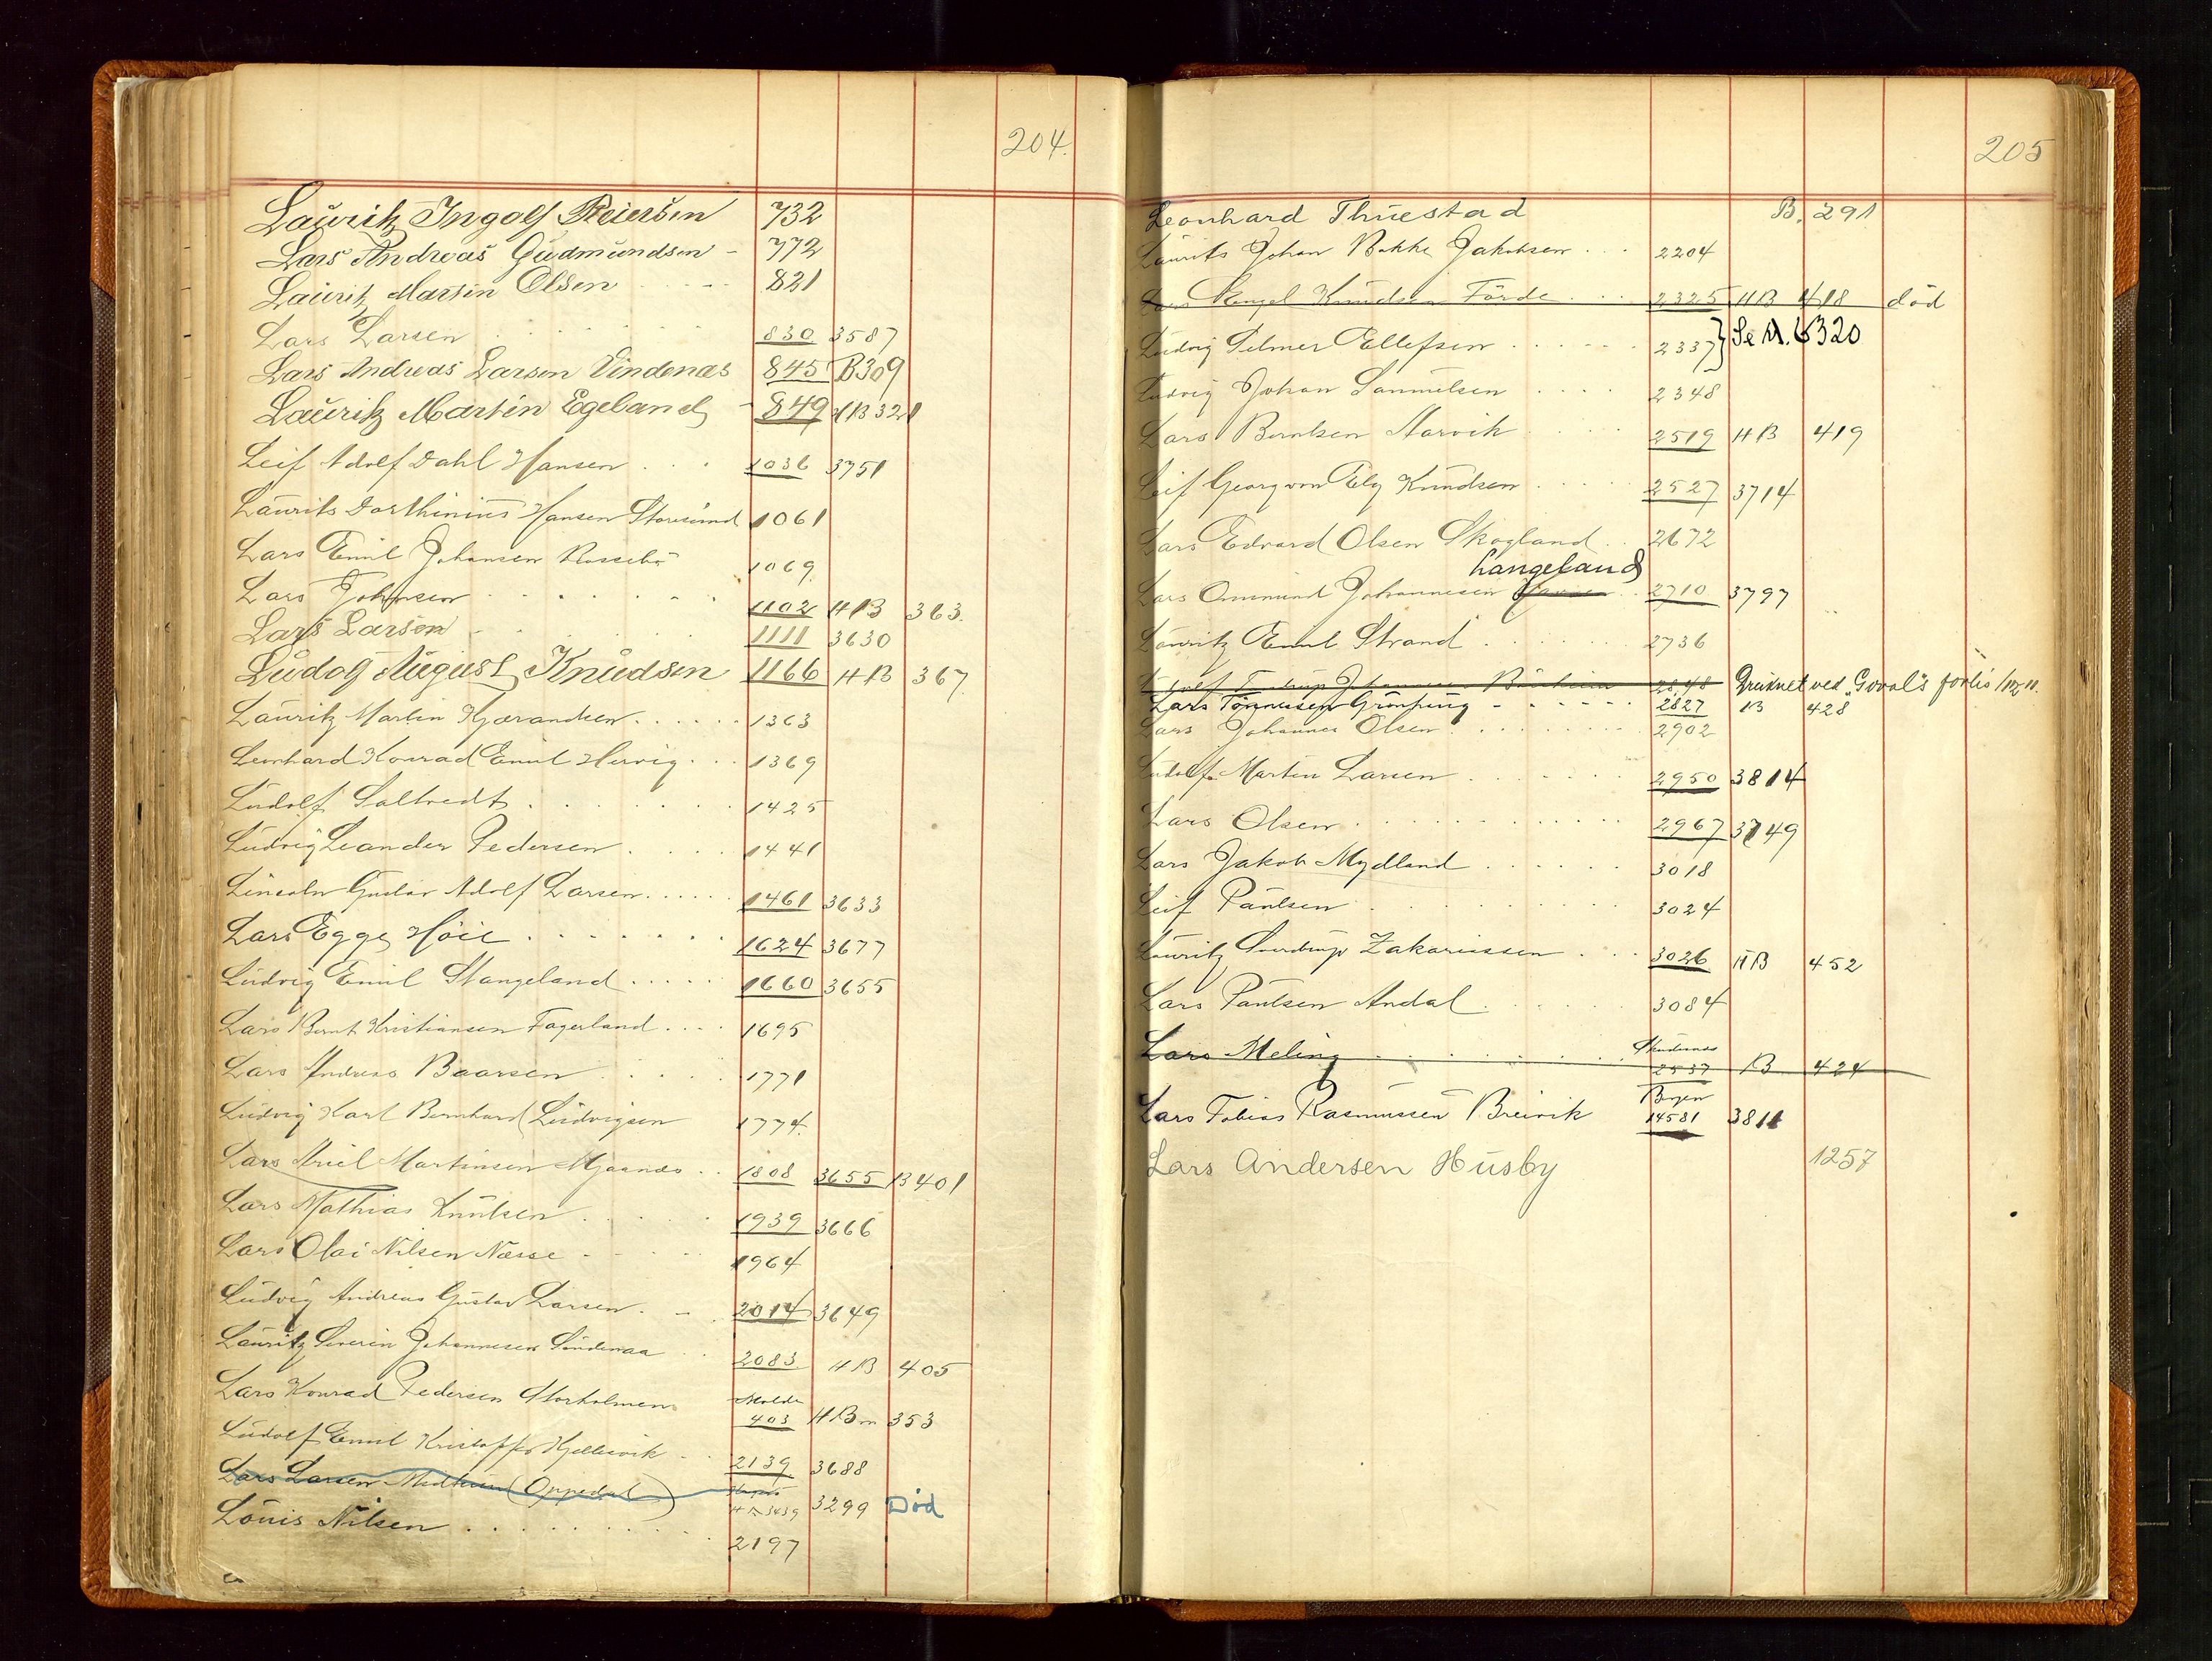 204.
Lauritz Ingolf Reiersen 732
Lars Andreas Gudmundsen - 772
Lauritz Martin Olsen 821
Lars Larsen 830 3587
Lars Andreas Larsen Vindenæs 845 B309
Lauritz Martin Egeland - 849 HB 321
Leif Adolf Dahl Hansen 1036 3751
Laurits Dorthinius Hansen Storesund 1061
Lars Emil Johansen Rossebø 1069
Lars Johnsen 1102 HB 363.
Lars Larsen 1111 3630
Ludolf August Knudsen 1166 HB 367.
Lauritz Martin Kjærandsen 1363
Leonhard Konrad Emil Hervig 1369
Ludolf Saltvedt 1425
Ludvig Leander Pedersen 1441
Lincoln Gustav Adolf Larsen 1461 3633
Lars Egge Høie 1624 3677
Ludvig Emil Stangeland 1660 3655
Lars Bernt Kristiansen Fagerland 1695
Lars Andreas Baarsen 1771
Ludvig Karl Bernhard Ludvigsen 1774.
Lars Ariel Martinsen 1808 3655 B 401
Lars Mathias Knutsen 1939 3666
Lars Olai Nilsen Næsse 1964
Ludvig Andreas Gustav Larsen 2014 3649
Lauritz Severin Johannesen Søndenaa 2083 HB 405
Lars Konrad Pedersen Storholmen Molde 403 HBm 353
Ludolf Emil Kristoffer Kjellesvik 2139 3688
Lars Larsen (Oppedal) 3439 3299 Død
Louis Nilsen 2197
205
Leonhard Thuestad B. 291
Laurits Johan Bakke Jakobsen 2204
Lars Knudsen Førde 2325 HB 418 død
Ludvig Selmer Ellefsen 2337 } Se N. 6320
Ludvig Johan Samuelsen 2348
Lars Berntsen Narvik 2519 HB 419
Leif Georg von Ely Knudsen 2527 3714
Lars Edvard Olsen Skogland 2672
Langeland
Lars Ommund Johannesen 2710 3797
Lauritz Emil Strand 2736
Johannesen 2848 Druknet ved "Goval's forlis
Lars Tønnesen Grønning 2827 B 428
Lars Johannes Olsen 2902
Ludolf Martin Larsen 2950 3814
Lars Olsen 2967 3749
Lars Jakob Mydland 3018
Leif Paulsen 3024
Lauritz Sverdrup Zakariassen 3026 HB 452
Lars Paulsen Andal 3084
Lars Meling Skudesnes 2537 B 424
Lars Tobias Rasmussen Breivik Bergen 14581 3811
Lars Andersen Husby 1257